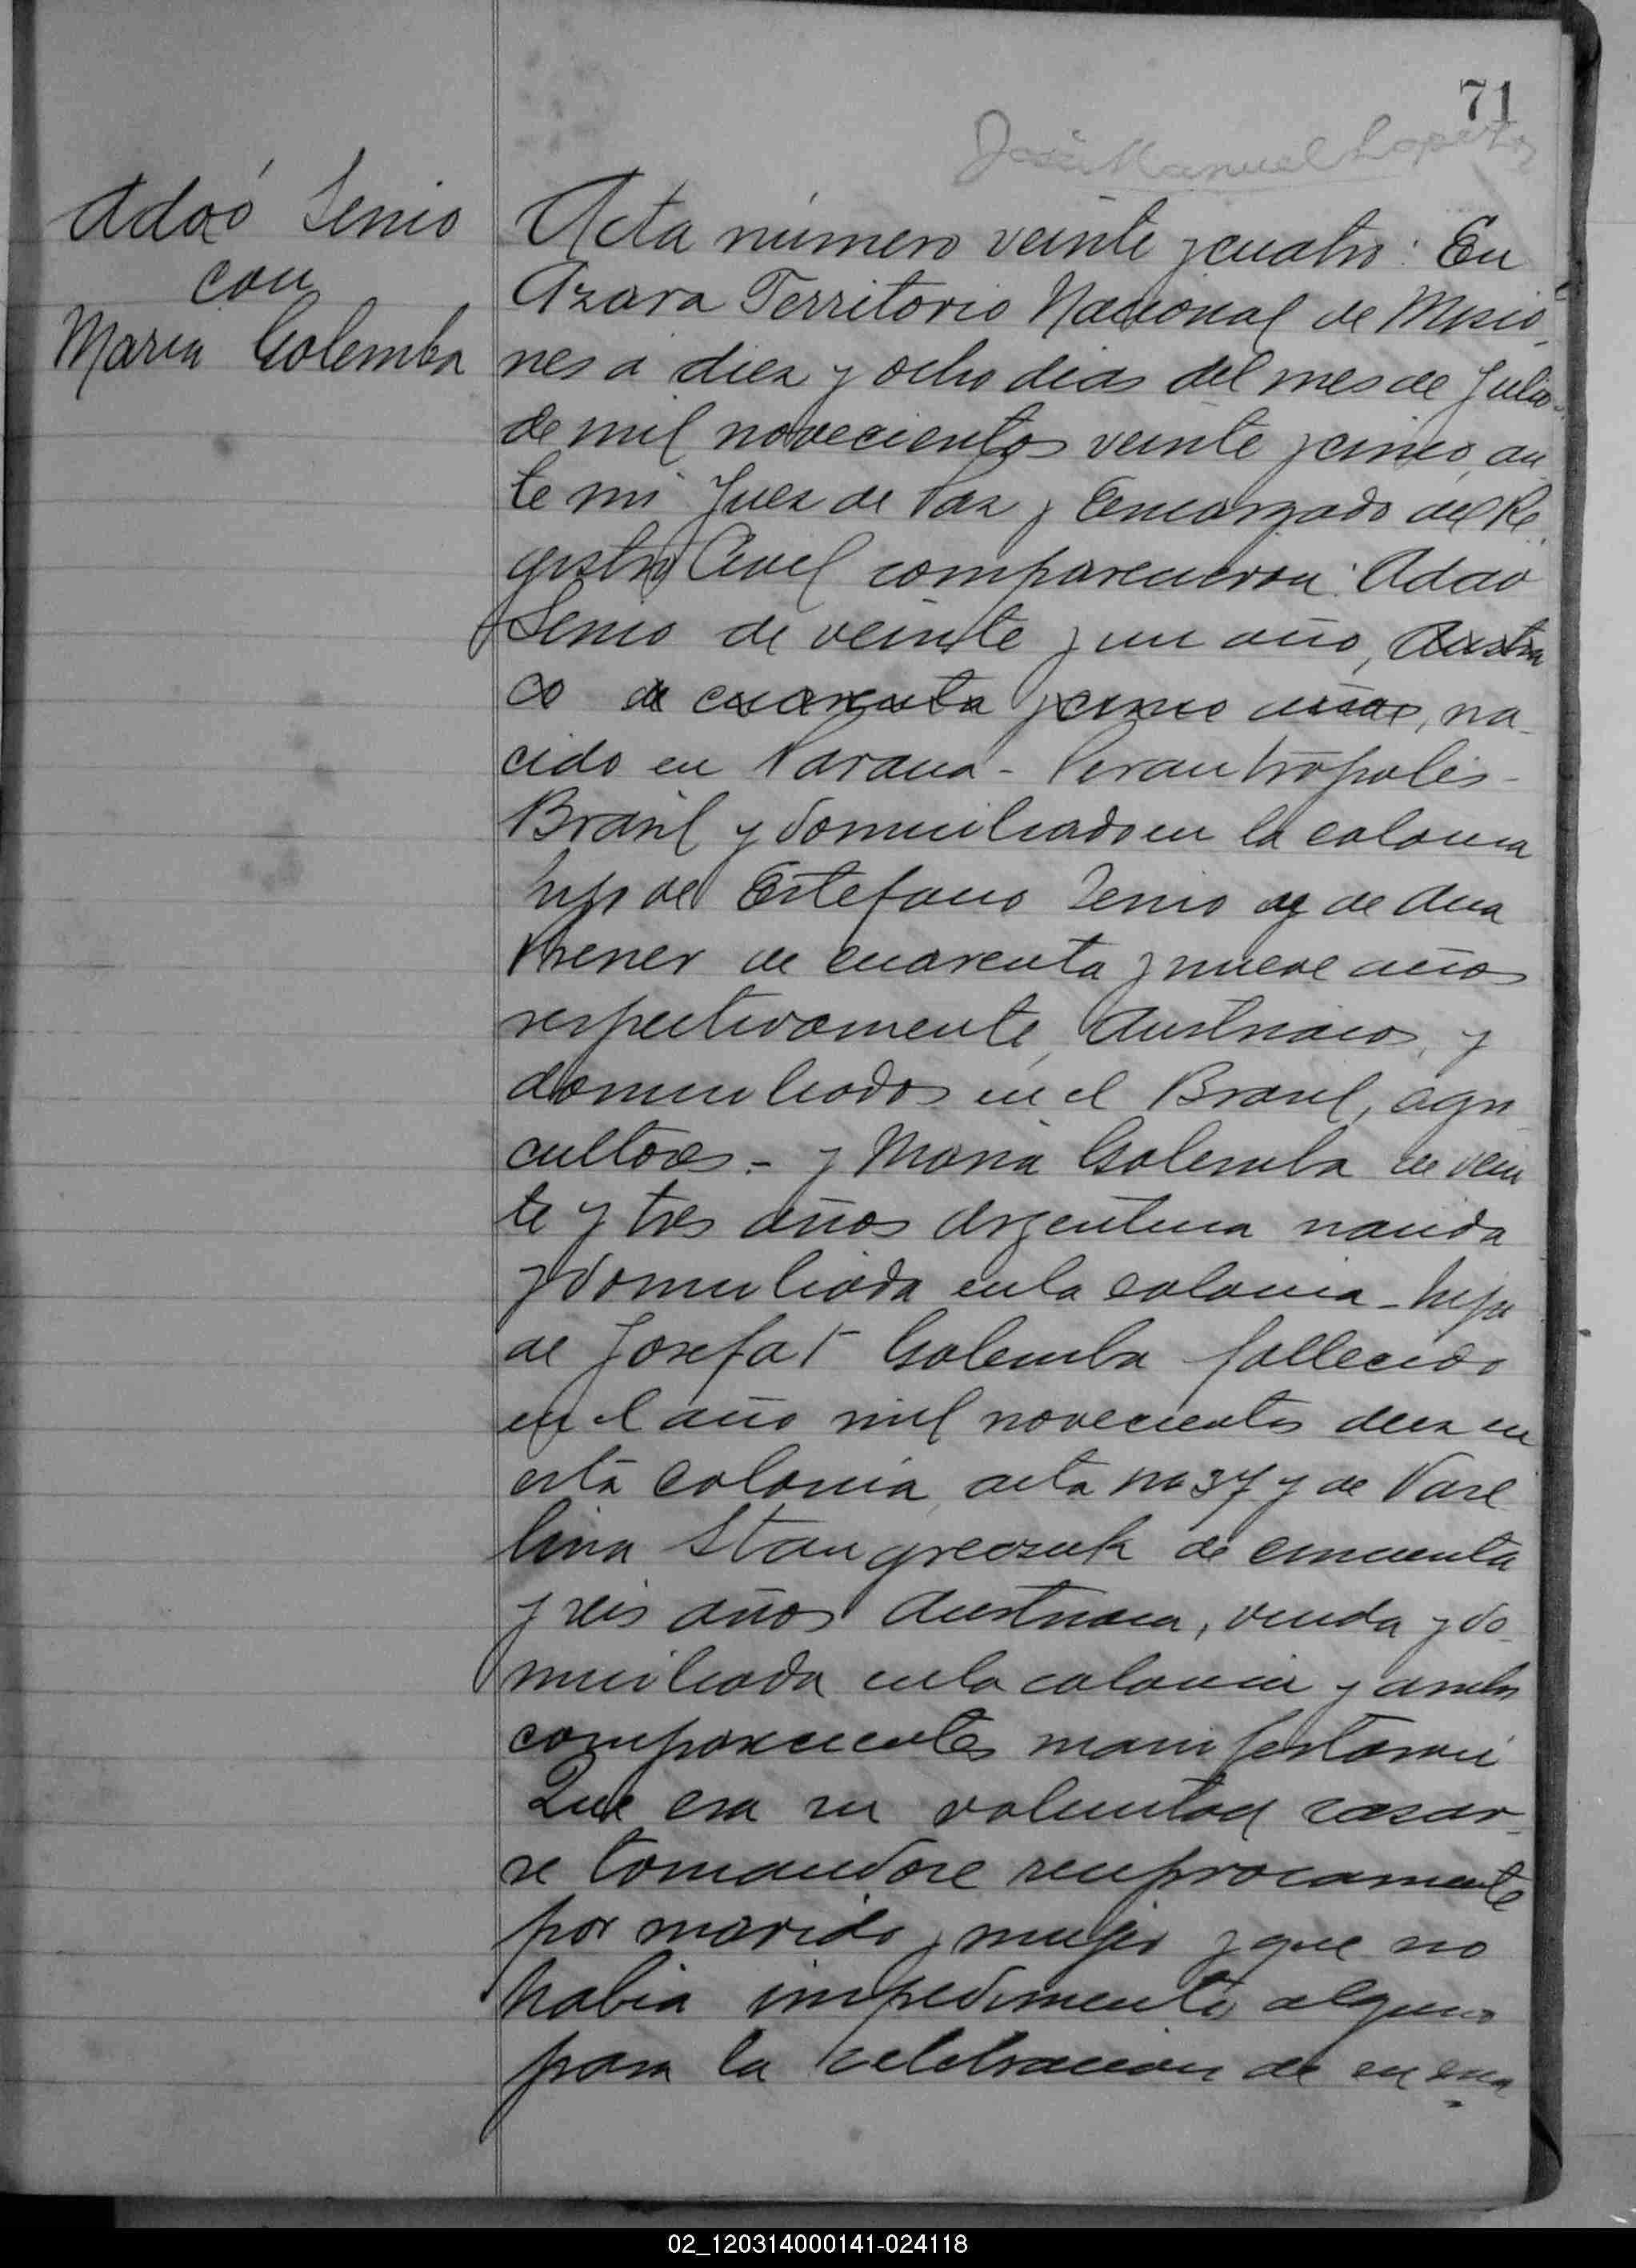 71
José Manuel Lopez
Adaó Senio
con
Maria Golemba
Acta número veinte y cuatro: En
Azara Territorio Nacional de Misio-
nes a diez y ocho dias del mes de Julio
de mil novecientos veinte y cinco, an
te mi Juez de Paz y Encargado del Re
gistro Civil comparecieron: Adao
Senio de veinte y un año, Austria
co de cuarenta y cinco años, na-
cido en Parana -
Brasil y domiciliado en la colonia
hijo de Estefano Senio y de Ana
de cuarenta y nueve años
respectivamente, Austriacos, y
domiciliados en el Brasil, agri
cultores.- y Maria Golemba de vein
te y tres años Argentina nacida
y domiciliada en la colonia - hija
de Josefat Golemba fallecido
en el año mil novecientos diez en
esta colonia, acta No 37 y de Vase
lina Stangreczuk de cincuenta
y seis años Austriaca, viuda y do-
miciliada en la colonia y ambos
comparecientes manifestaron:
Que era su voluntad casar-
se tomandose reciprocamente
por marido y mujer y que no
habia impedimento alguno
para la celebracion de
02_120314000141-024118